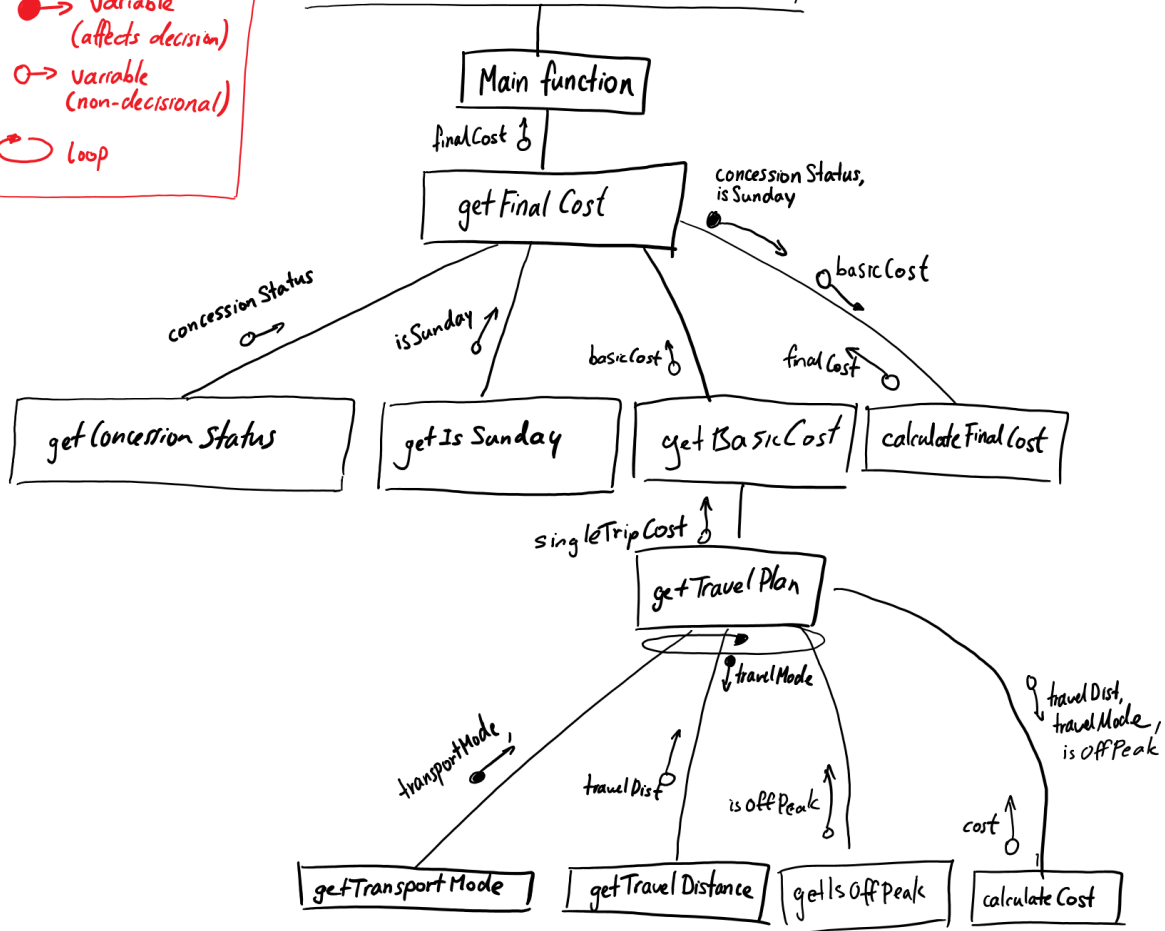 variable
(affects decision)
variable
(non-decisional)
loop
Main function
finalCost
getFinal Cost
concession Status,
isSunday
basicCost
concession Status
isSunday
basicCost
finalCost
getConcession Status
getIs Sunday
getBasicCost
calculateFinalCost
singleTripCost
getTravelPlan
travelMode
transportMode,
travelDist
isOffPeak
travelDist,
travelMode,
isOffPeak
cost
getTransportMode
getTravelDistance
getIsOffPeak
calculateCost